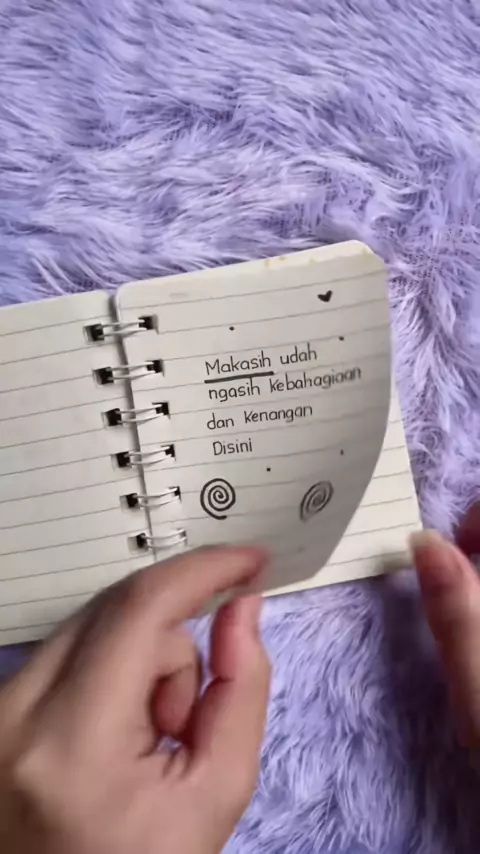 Makasih udah
ngasih kebahagiaan
dan kenangan
Disini